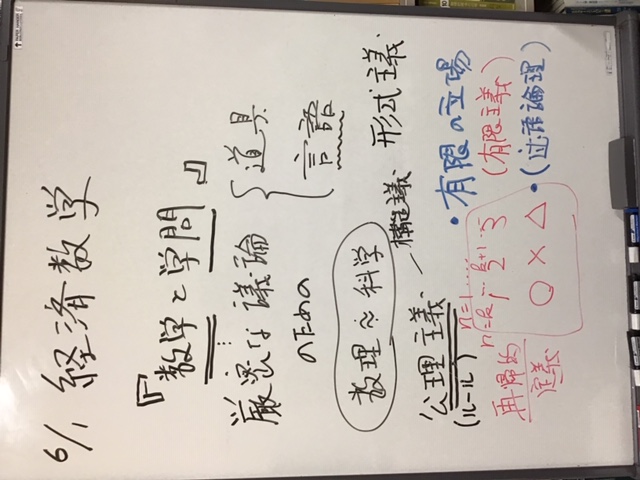 6/1 経済数学
『数学と学問』
厳密な議論 道具
のための 言語
数理≈科学 形式主義
公理主義 構造義
(ルール)
・有限の立場
(有限主義)
再帰的
定義
n=1
n=k k+1
1 2 3
○ × △